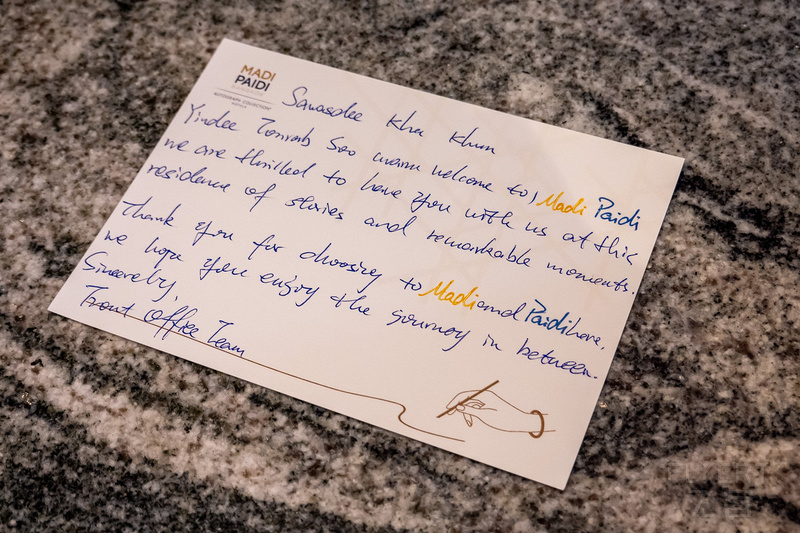 MADI
PAIDI
AUTOGRAPH COLLECTION
HOTELS
Sawasdee Kha Khun
Yindee Tonrab Soo warm welcome to, Madi Paidi
we are thrilled to have you with us at this
residence of stories and remarkable moments.
Thank you for choosing to Madi and Paidi here.
we hope you enjoy the journey in between.
Sincerely,
Front Office Team